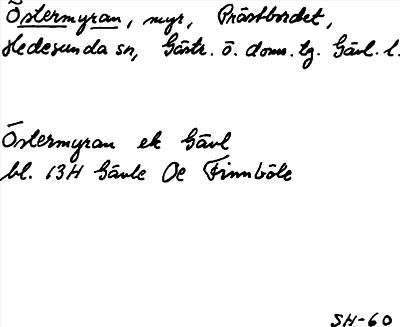 Östermyran, myr, Prästbordet,
Hedesunda sn, Gästr. ö. doms. tg. Gävl. l.
Östermyran ek Gävl
bl. 13H Gävle Oe Finnböle
SH-60